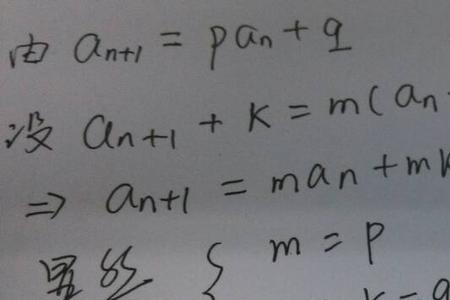 由 aₙ₊₁ = paₙ + q
设 aₙ₊₁ + k = m(aₙ
⇒ aₙ₊₁ = maₙ + mk
{ m = p
k = q